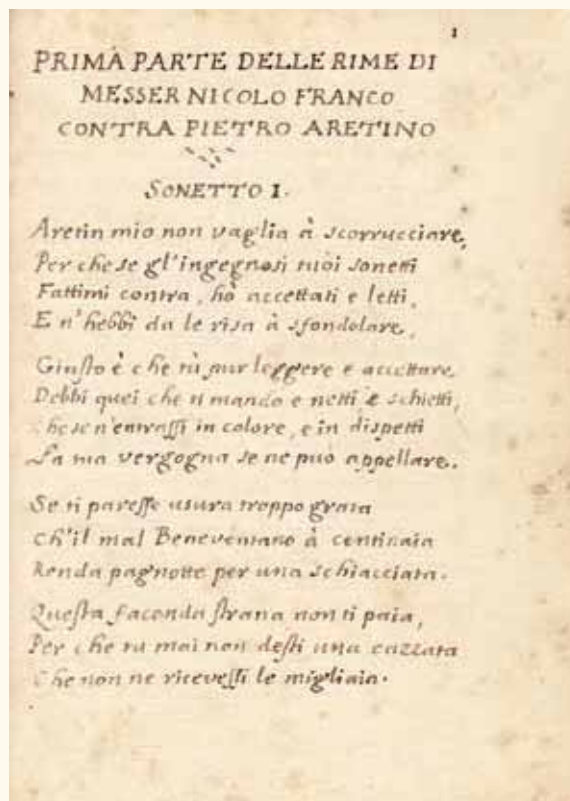 1
PRIMA PARTE DELLE RIME DI
MESSER NICOLO FRANCO
CONTRA PIETRO ARETINO
SONETTO I.
Aretin mio non vaglia à scorrucciare,
Per che se gl'ingegnosi tuoi sonetti
Fattimi contra, hò accettati e letti,
E n'hebbi da le risa à sfondolare,
Giusto è che tù pur leggere e accettare
Debbi quei che ti mando e netti e schietti,
Che se n'entrassi in colore, e in dispetti
La tua vergogna se ne può appellare.
Se ti paresse usura troppo grata
Ch'il mal Beneventano à centinaia
Renda pagnotte per una schiacciata.
Questa faconda strana non ti paia,
Per che tu mai non desti una cazzata
Che non ne ricevessi le migliaia.